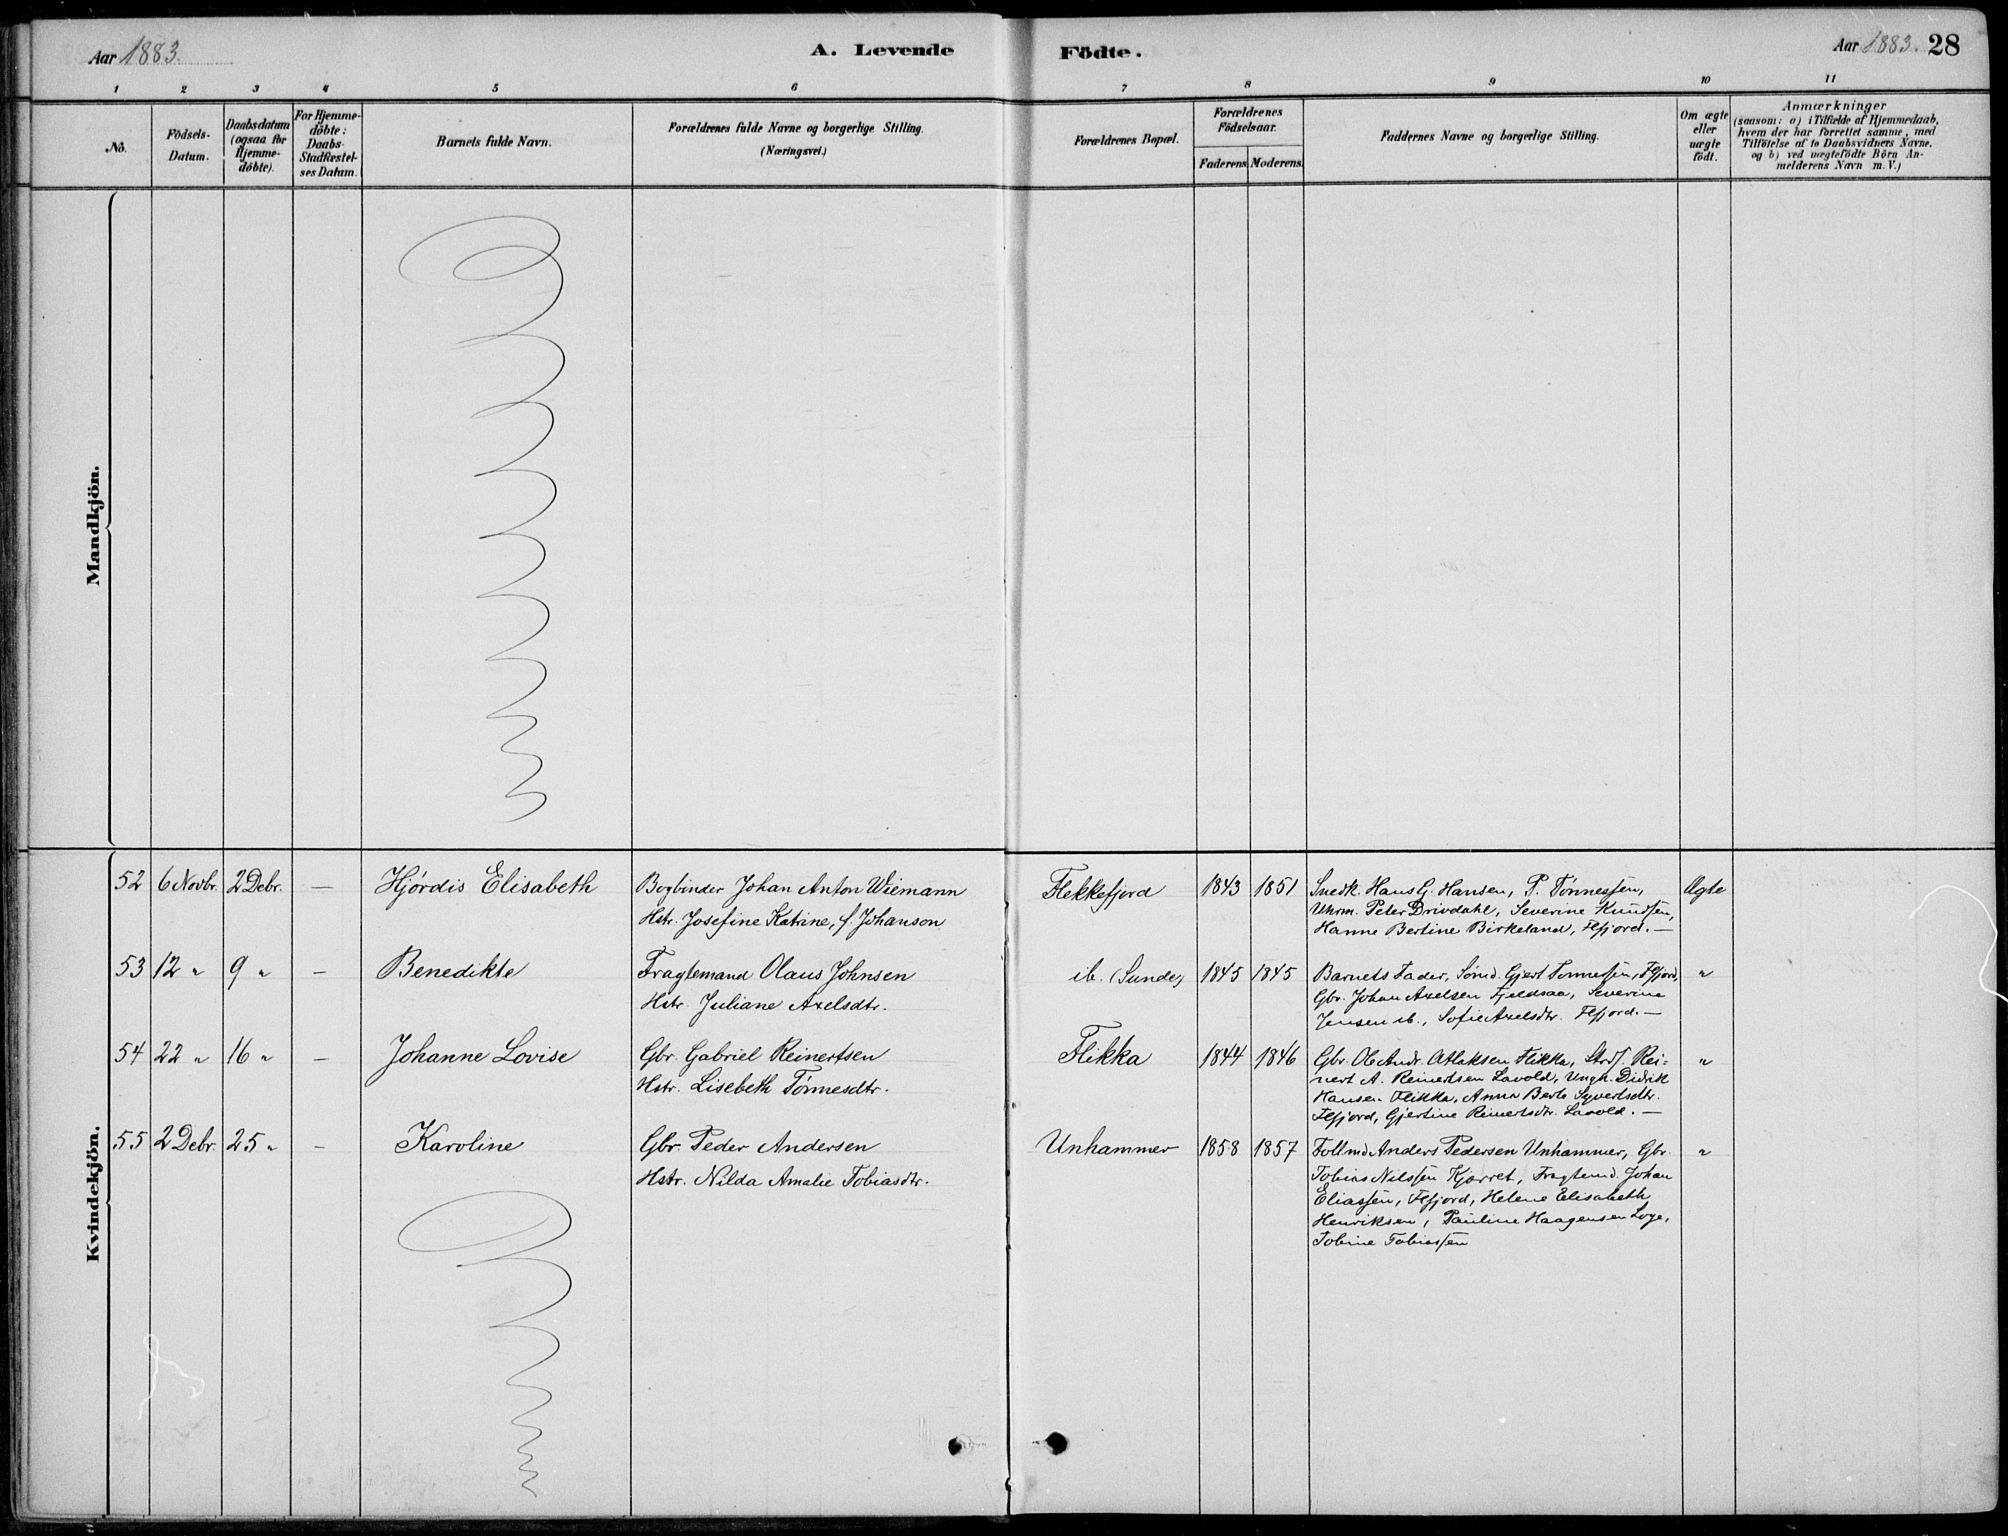 Aar 1883.
A. Levende Födte.
Aar 1883. 28
1 2 3 4 5 6 7 8 9 10 11
No.
Födsels-
Datum.
Daabsdatum
(ogsaa for
Hjemme-
döbte).
For Hjemme-
döbte:
Daabs-
Stadfæstel-
ses Datum.
Barnets fulde Navn.
Forældrenes fulde Navne og borgerlige Stilling.
(Næringsvei.)
Forældrenes Bopæl.
Forældrenes
Födselsaar.
Faderens. Moderens.
Faddernes Navne og borgerlige Stilling.
Om ægte
eller
uægte
födt.
Anmærkninger
(saasom: a) i Tilfælde af Hjemmedaab,
hvem der har forrettet samme, med
Tilföielse af to Daabsvidners Navne,
og b) ved uægtefödte Börn An-
melderens Navn m. V.)
Mandkjön.
Kvindekjön.
52 6 Novbr. 2 Debr. — Hjørdis Elisabeth
Bogbinder Johan Anton Wiemann
Hstr. Josefine Katrine, f. Johanson
Flekkefjord 1843 1851
Snedk. Hans G. Hansen, P. Tønnessen,
Uhrm. Peter Drivdahl, Severine Knudsen,
Hanne Bertine Birkeland, Ffjord. —
Ægte
53 12 " 9 " — Benedikte
Fragtemand Olaus Johnsen
Hstr. Juliane Axelsdtr.
ib. (Sunde) 1845 1845
Barnets Fader, Sømd. Gjert Tønnessen, Ffjord,
Gbr. Johan Axelsen Fjeldsaa, Severine
Jensen ib., Sofie Axelsdtr. Ffjord. —
"
54 22 " 16 " — Johanne Lovise
Gbr. Gabriel Reinertsen
Hstr. Lisebeth Tönnesdtr.
Flikka 1844 1846
Gbr. Ole Andr. Atlaksen Flikka, Rei-
nert A. Reinertsen Lavold, Ungk. Didrik
Hansen Flikka, Anna Berte Syvertsdtr.
Ffjord, Gjertine Reinertsdtr. Lavold. —
"
55 2 Debr. 25 " — Karoline
Gbr. Peder Andersen
Hstr. Nilda Amalie Tobiasdtr.
Unhammer 1858 1857
Follmd Anders Pedersen Unhammer, Gbr.
Tobias Nilssen Kjørret, Fragtemd. Johan
Eliassen, Ffjord, Helene Elisabeth
Henriksen, Pauline Haagensen Loge,
Tobine Tobiassen
"